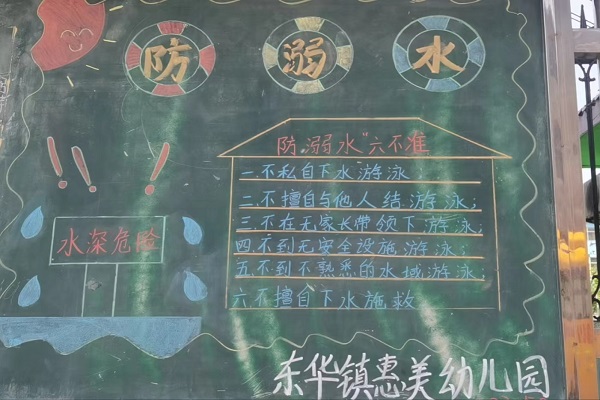 防溺水
防溺水"六不准
一.不私自下水游泳;
二.不擅自与他人结游泳;
三.不在无家长带领下游泳;
四.不到无安全设施游泳;
五.不到不熟悉的水域游泳;
六不擅自下水施救
!!!
水深危险
东华镇惠美幼儿园